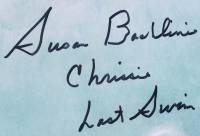 Susan Backlinie
Chrissie
Last Swim